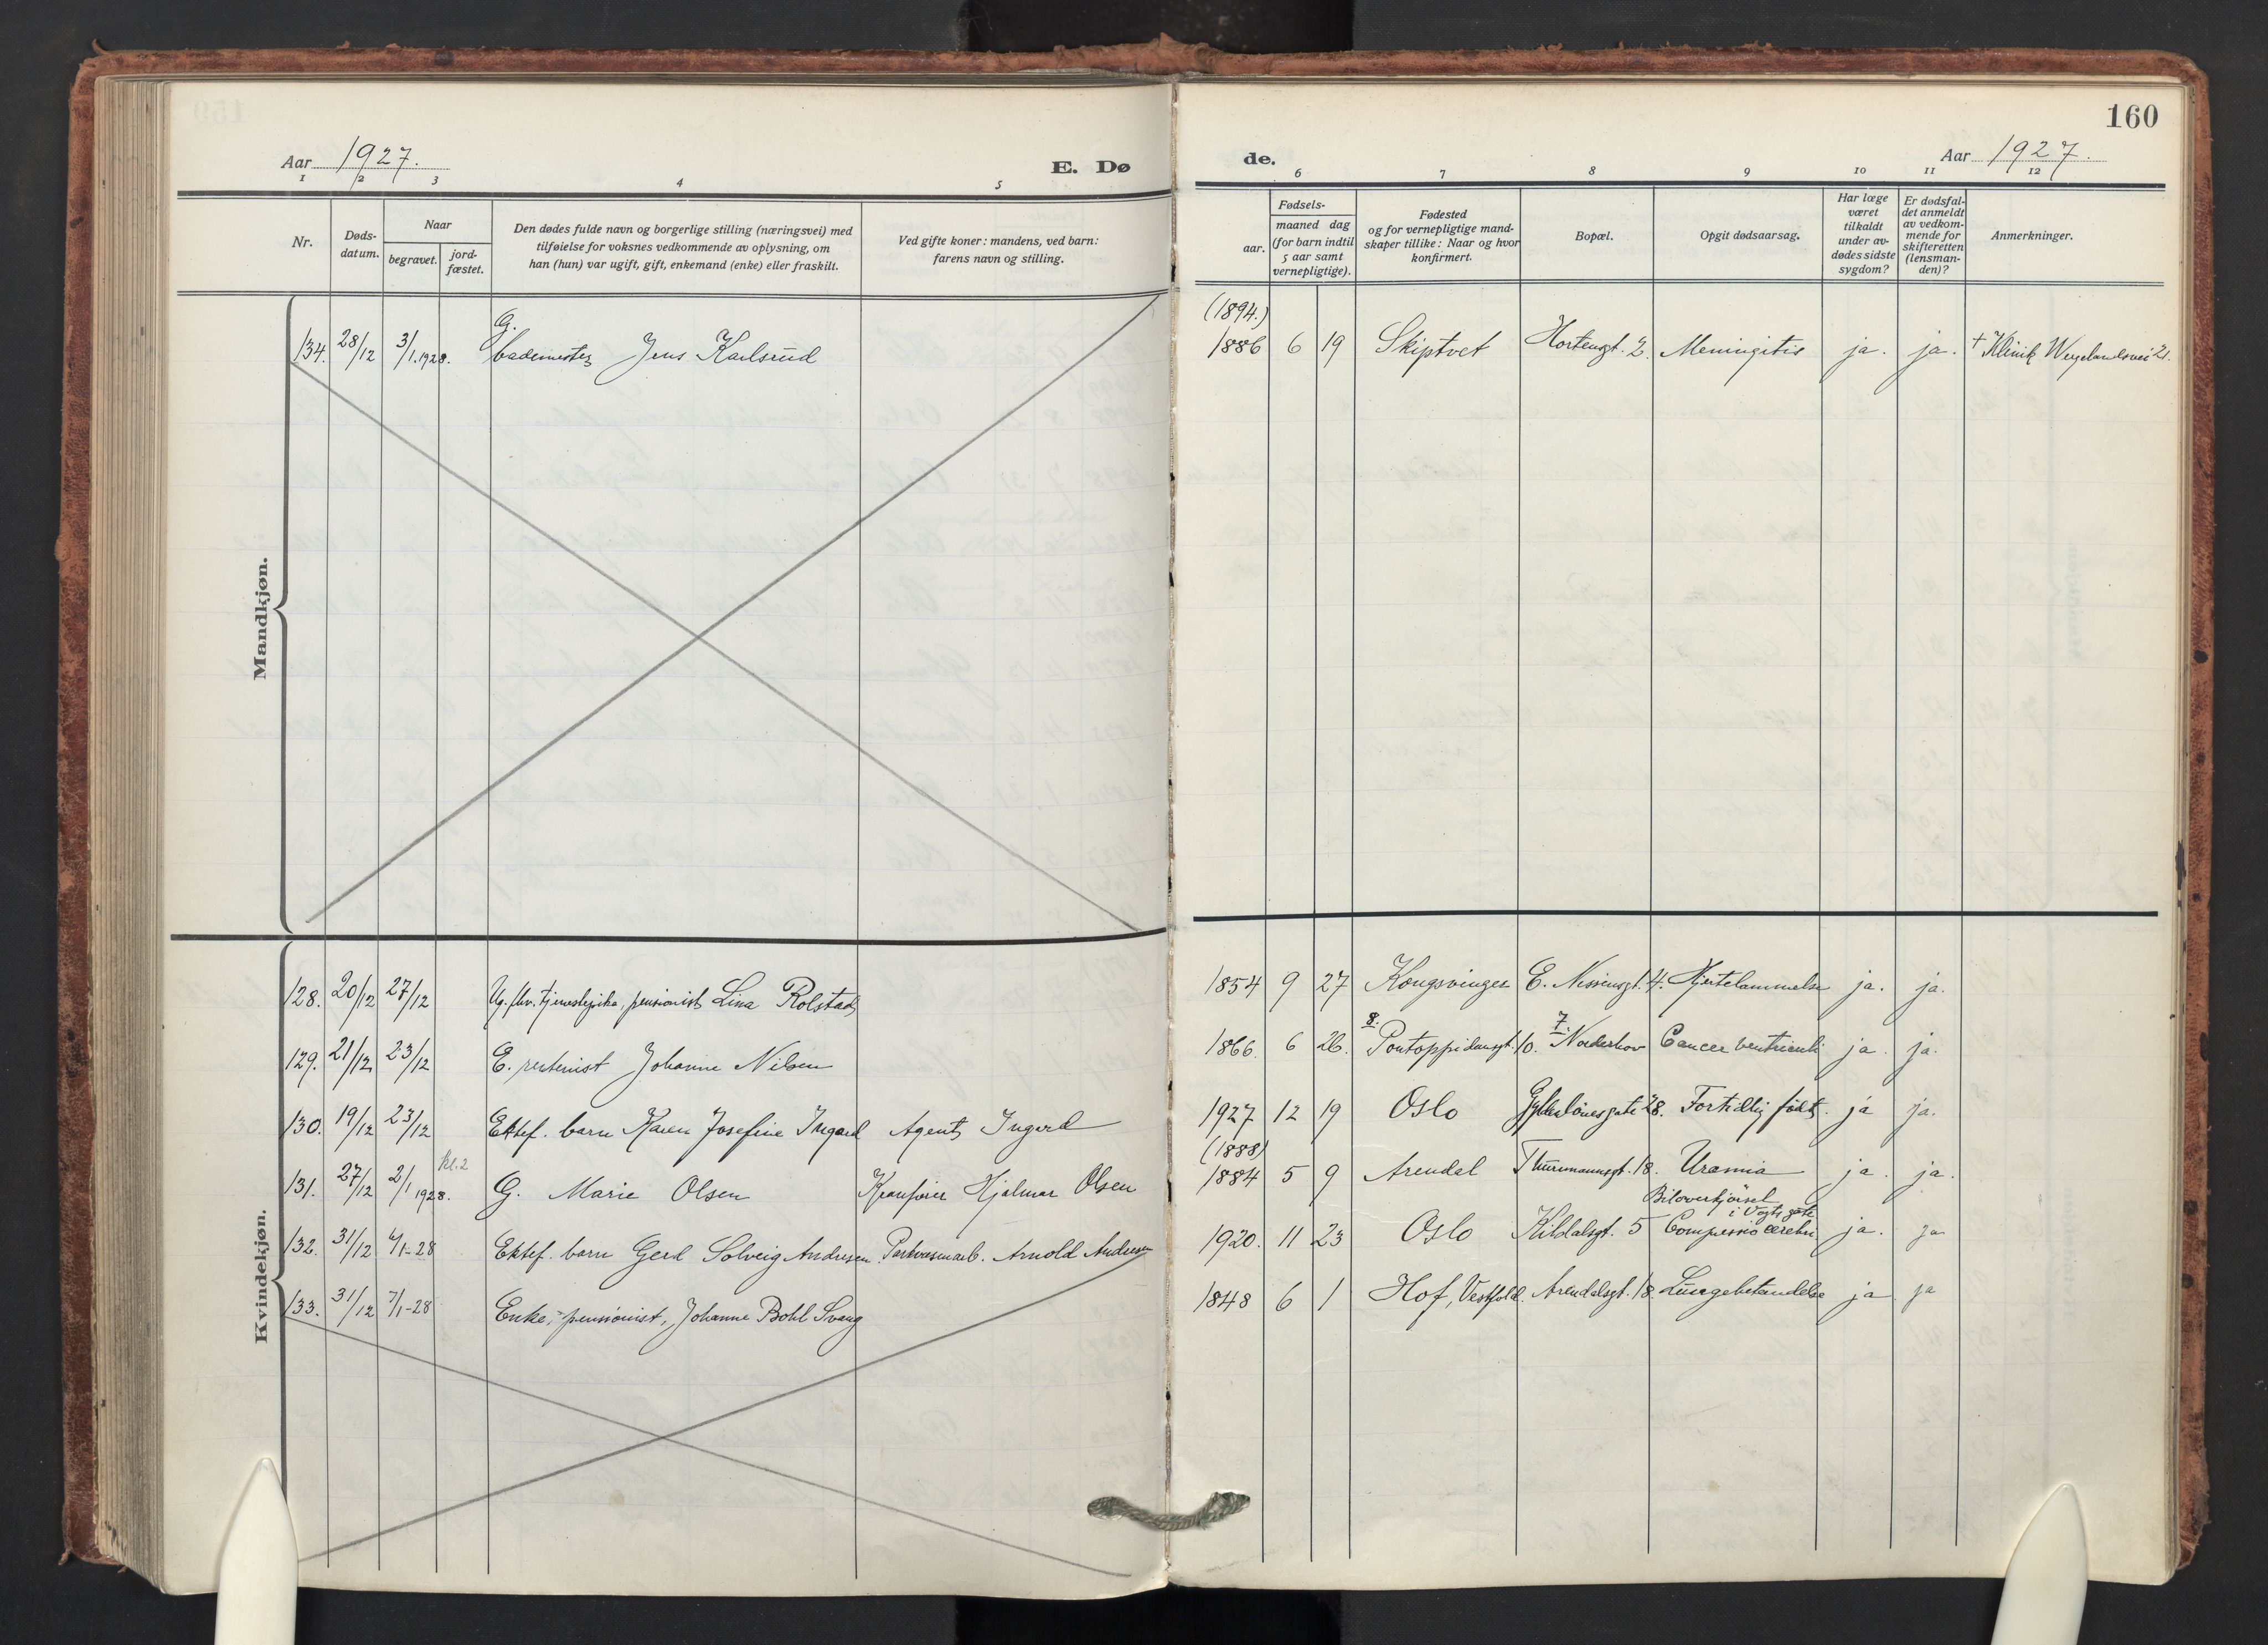 160
Aar 1927.
E. Dø
de.
Aar 1927.
1 2 3 4 5 6 7 8 9 10 11 12
Nr.
Døds-
datum.
Naar
begravet.
jord-
fæstet.
Den dødes fulde navn og borgerlige stilling (næringsvei) med
tilføielse for voksnes vedkommende av oplysning, om
han (hun) var ugift, gift, enkemand (enke) eller fraskilt.
Ved gifte koner: mandens, ved barn:
farens navn og stilling.
Fødsels-
aar.
maaned dag
(for barn indtil
5 aar samt
vernepligtige).
Fødested
og for vernepligtige mand-
skaper tillike: Naar og hvor
konfirmert.
Bopæl.
Opgit dødsaarsag.
Har læge
været
tilkaldt
under av-
dødes sidste
sygdom?
Er dødsfal-
det anmeldt
av vedkom-
mende for
skifteretten
(lensman-
den)?
Anmerkninger.
Mandkjøn.
G. (1894.)
134. 28/12 3/1.1928. bademester Jens Karlsrud 1886 6 19 Skiptvet Hortensgt. 2. Meningitis ja. ja. † Klinik Wergelandsvei 21.
Kvindekjøn.
128. 20/12 27/12 Ug. fhv. tjenestepike, pensionist Lina Rolstad 1854 9 27 Kongsvinger E. Nissensgt. 4. Hjertelammelse ja. ja.
8. 7.
129. 21/12 23/12 E. rentenist Johanne Nilsen 1866. 6 26. Pontoppidansgt. 10. Norderhov Cancer ventriculi ja. ja.
130. 19/12 23/12 Ektef. barn Karen Josefine Ingard Agent Ingerd 1927 12 19 Oslo Gyldenløvesgate 28. Fortidlig født. ja ja.
kl. 2 (1888)
131. 27/12 2/1 1928. G. Marie Olsen Kranfører Hjalmar Olsen 1884 5 9 Arendal Thurmannsgt. 18. Uræmia ja. ja.
Biloverkjørsel
i Vogts gate
132. 31/12 6/1-28 Ektef. barn Gerd Solveig Andresen Parkvæsenarb. Arnold Andresen 1920. 11 23 Oslo Kildalsgt. 5 Compressio cerebri ja. ja
133. 31/12 7/1-28 Enke, pensionist, Johanne Bohl Svang 1848 6 1 Hof, Vestfold. Arendalsgt. 18. Lungebetændelse ja ja